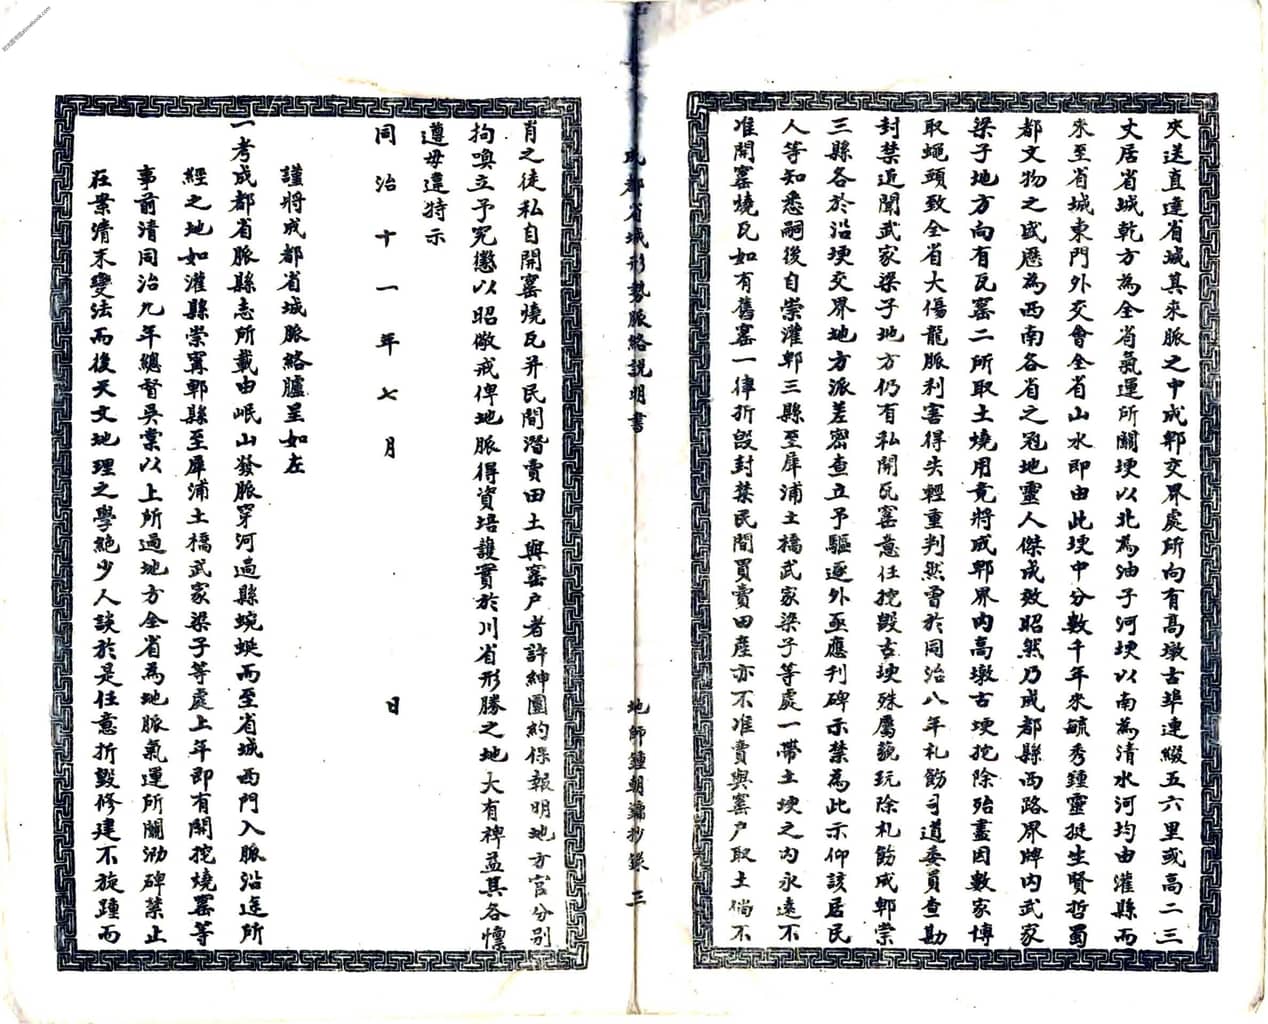 夾送直達省城其來脈之中成郫交界處所向有高墩古埠連綴五六里或高二三
丈居省城乾方為全省氣運所關埂以北為油子河埂以南為清水河均由灌縣而
來至省城東門外交會全省山水即由此埂中分數千年來毓秀鍾靈挺生賢哲蜀
都文物之盛歷為西南各省之冠地靈人傑成效昭然乃成都縣西路界牌內武家
梁子地方向有瓦窰二所取土燒用竟將成郫界內高墩古埂挖除殆盡因數家博
取蠅頭致全省大傷龍脈利害得失輕重判然曾於同治八年札飭司道委員查勘
封禁近聞武家梁子地方仍有私開瓦窰意任挖毀古埂殊屬藐玩除札飭成郫崇
三縣各於沿埂交界地方派差密查立予驅逐外亟應刊碑示禁為此示仰該居民
人等知悉嗣後自崇灌郫三縣至犀浦土橋武家梁子等處一帶土埂之內永遠不
准開窰燒瓦如有舊窰一律折毀封禁民間買賣田產亦不准賣與窰户取土倘不
成都省城形勢脈絡說明書
地師鍾朝鏞抄錄 三
肖之徒私自開窰燒瓦并民間潛賣田土與窰户者許紳團約保報明地方官分別
拘喚立予究懲以昭儆戒俾地脈得資培護實於川省形勝之地大有裨益其各懍
遵毋違特示
同治十一年七月 日
謹將成都省城脈絡臚呈如左
一考成都省脈縣志所載由岷山發脈穿河過縣蜿蜒而至省城西門入脈沿途所
經之地如灌縣崇甯郫縣至犀浦土橋武家梁子等處上年即有開挖燒窰等
事前清同治九年總督吳棠以上所過地方全省為地脈氣運所關泐碑禁止
在案清末變法而後天文地理之學絕少人談於是任意折毀修建不旋踵而